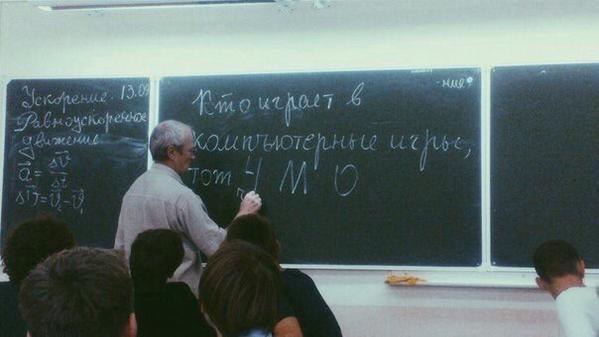 Ускорение. 13.09
Равноускоренное
движение
a = Δv
Δt
Δv = v₂ - v₁
Кто играет в
компъютерные игры,
тот Ч М О
ние